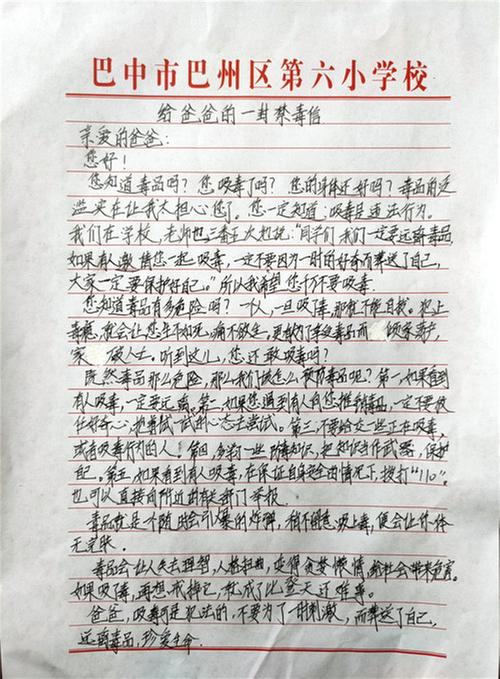 巴中市巴州区第六小学校
给爸爸的一封禁毒信
亲爱的爸爸：
您好！
您知道毒品吗？您吸毒了吗？您的身体还好吗？毒品的泛
滥实在让我太担心您了。您一定知道：吸毒是违法行为。
我们在学校，老师也三番五次地说："同学们我们一定要远离毒品，
如果有人邀请您一起吸毒，一定不要因为一时的好奇而葬送了自己，
大家一定要保护好自己。"所以我希望您千万不要吸毒。
您知道毒品有多危险吗？一个人，一旦吸了毒，那就不能自我。犯上
毒瘾，就会让您生不如死，痛不欲生，更会为了享受毒品而倾家荡产，
家破人亡，听到这儿，您还敢吸毒吗？
既然毒品那么危险，那么我们该怎么预防毒品呢？第一，如果看到
有人吸毒，一定要远离。第二，如果您遇到有人向您推销毒品，一定要放
任好奇心，抱着试一试的心态去尝试。第三，不要给这一些正在吸毒，
或者吸毒行为的人！第四，多学一些防毒知识，把知识当作武器，保护
自己。第五，如果看到有人吸毒，在保证自身安全的情况下，拨打"110"。
也可以直接向附近的有关部门举报。
毒品就是个随时会引爆的炸弹，稍不留意吸上毒，便会让你体
无完肤。
毒品会让人失去理智，人格扭曲，变得贪婪无情，给社会带来危害。
如果吸了毒，再想戒掉它，就成了比登天还难事。
爸爸，吸毒可是犯法的，不要为了一时刺激，而葬送了自己，
远离毒品，珍爱生命.